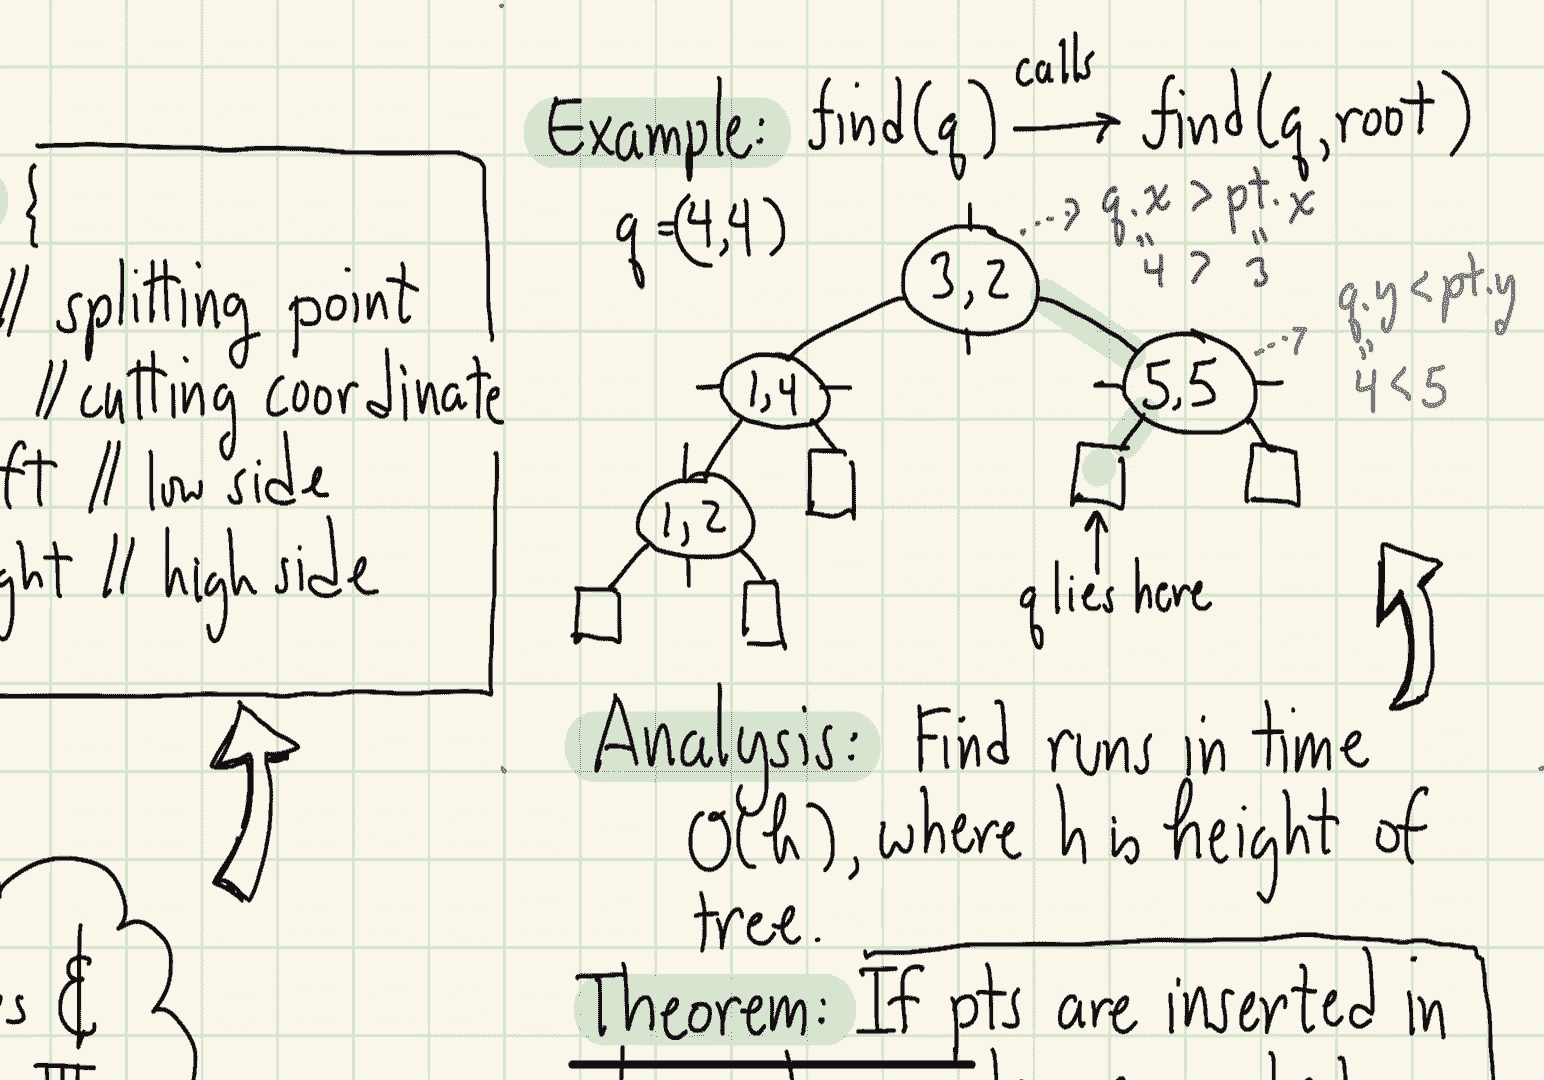 {
// splitting point
// cutting coordinate
ft // low side
ght // high side
s &
Example: find(q) calls → find(q, root)
q = (4,4)
q.x > pt.x
4 > 3
3,2
q.y < pt.y
4 < 5
1,4
5,5
1,2
q lies here
Analysis: Find runs in time
O(h), where h is height of
tree.
Theorem: If pts are inserted in